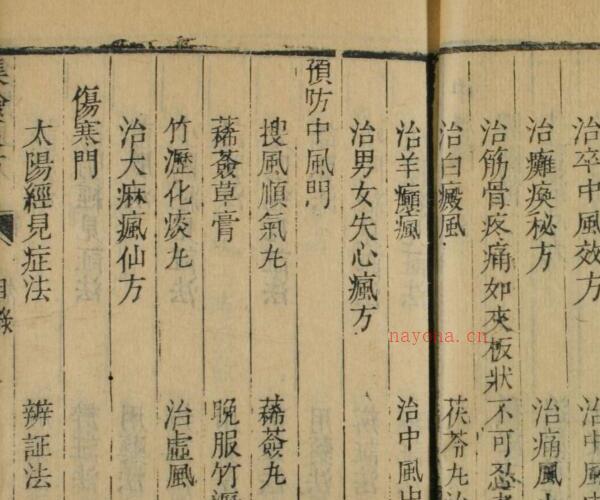 治卒中風效方 治中風
治癱瘓秘方 治痛風
治筋骨疼痛如夾板狀不可忍者
治白癜風 茯苓丸治
治羊癲瘋 治中風
治男女失心瘋方
預防中風門
搜風順氣丸 豨薟丸
豨薟草膏 晚服竹瀝
竹瀝化痰丸 治虛風
治大麻瘋仙方
傷寒門
太陽經見症法 辨証法
目錄
naycha.cn